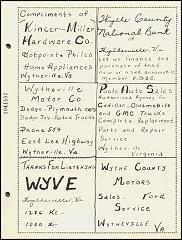 Compliments of
Kincer-Miller
Hardware Co.
Hotpoint & Philco
Home Appliances
Wytheville, Va.
Wythe County
National Bank
of
Wytheville, Va.
Let us finance the
purchase of that
new or used automobile
Member F.D.I.C.
Wytheville
Motor Co.
Dodge-Plymouth cars
Dodge Job-Rated Trucks
Phone 554
East Lee Highway
Wytheville, Va.
Poole Auto Sales
Authorized Agency for
Cadillac, Oldsmobile
and GMC Trucks
Complete Replacement
Parts and Repair
Service
Wytheville
Virginia
Thanks For Listening
WYVE
Wytheville, Va.
1280 Kc-
1000 W-
Wythe County
Motors
Sales Ford
Service
Wytheville Va